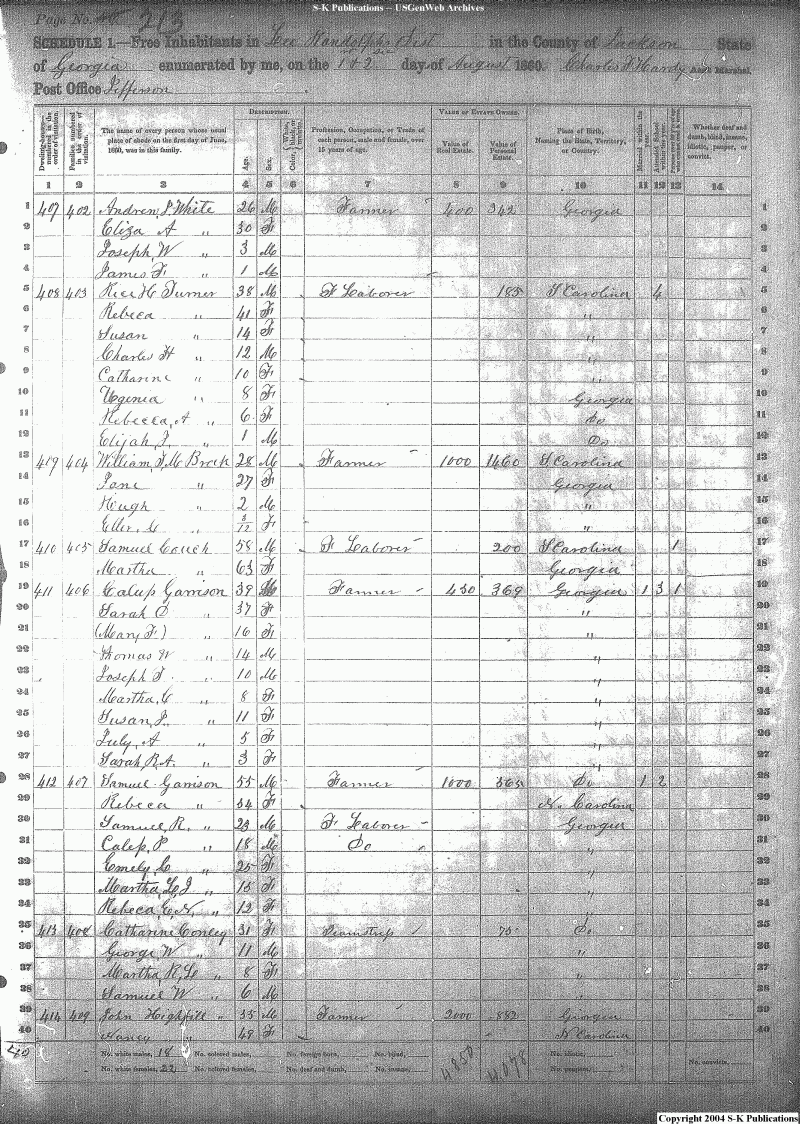 S-K Publications – USGenWeb Archives
Page No. 213
SCHEDULE 1.—Free Inhabitants in Randolphs Dist in the County of Jackson State
of Georgia enumerated by me, on the 1 & 2 day of August 1860. Charles Hardy Ass't Marshal.
Post Office Jefferson
DESCRIPTION. VALUE OF ESTATE OWNED.
Dwelling-houses—numbered in the order of visitation.
Families numbered in the order of visitation.
The name of every person whose usual place of abode on the first day of June, 1860, was in this family.
Age.
Sex.
Profession, Occupation, or Trade of each person, male and female, over 15 years of age.
Value of Real Estate.
Value of Personal Estate.
Place of Birth, Naming the State, Territory, or Country.
Married within the year.
Attended School within the year.
Whether deaf and dumb, blind, insane, idiotic, pauper, or convict.
1 2 3 4 5 6 7 8 9 10 11 12 13 14
1 407 402 Andrew J. White 26 M Farmer 400 342 Georgia 1
2 Eliza A " 30 F 2
3 Joseph W " 3 M 3
4 James F. " 1 M 4
5 408 403 Rice H. Turner 38 M F Laborer 185 S Carolina 4 5
6 Rebeca " 41 F " 6
7 Susan " 14 F " 7
8 Charles H " 12 M " 8
9 Catharine " 10 F " 9
10 Vgenia " 8 F Georgia 10
11 Rebecca, A " 6 F Do 11
12 Elijah J. " 1 M Do 12
13 409 404 William F. M. Brock 28 M Farmer 1000 1460 S Carolina 13
14 Jane " 27 F Georgia 14
15 Hough " 2 M " 15
16 Ellen, C " F " 16
17 410 405 Samuel Couch 58 M F Laborer 200 S Carolina 1 17
18 Martha " 63 F Georgia 18
19 411 406 Calup Garrison 39 M Farmer 450 369 Georgia 1 3 1 19
20 Sarah C " 37 F " 20
21 (Mary F.) " 16 F " 21
22 Thomas W " 14 M " 22
23 Joseph F. " 10 M " 23
24 Martha, C " 8 F " 24
25 Susan, J. " 11 F " 25
26 July, A " 5 F " 26
27 Sarah R.A. " 3 F " 27
28 412 407 Samuel Garrison 55 M Farmer 1000 365 Do 1 2 28
29 Rebeca " 54 F N. Carolina 29
30 Samuel, R. " 23 M F. Laborer Georgia 30
31 Calep, P " 18 M Do " 31
32 Emely, C " 25 F " 32
33 Martha, L, J " 15 F " 33
34 Rebeca, E, N, " 12 F " 34
35 413 408 Catharine Conley 31 F 75 Do 35
36 George W " 11 M " 36
37 Martha, R, " 8 F " 37
38 Samuel W " 6 M " 38
39 414 409 John Highfill " 55 M Farmer 2000 882 Georgia 39
40 Nancy " 49 F N Carolina 40
40 No. white males, 18 No. colored males, No. foreign born, No. blind, 4850 4078 No. idiotic, No. convicts,
No. white females, 22 No. colored females, No. deaf and dumb, No. insane, No. paupers,
Copyright 2004 S-K Publications